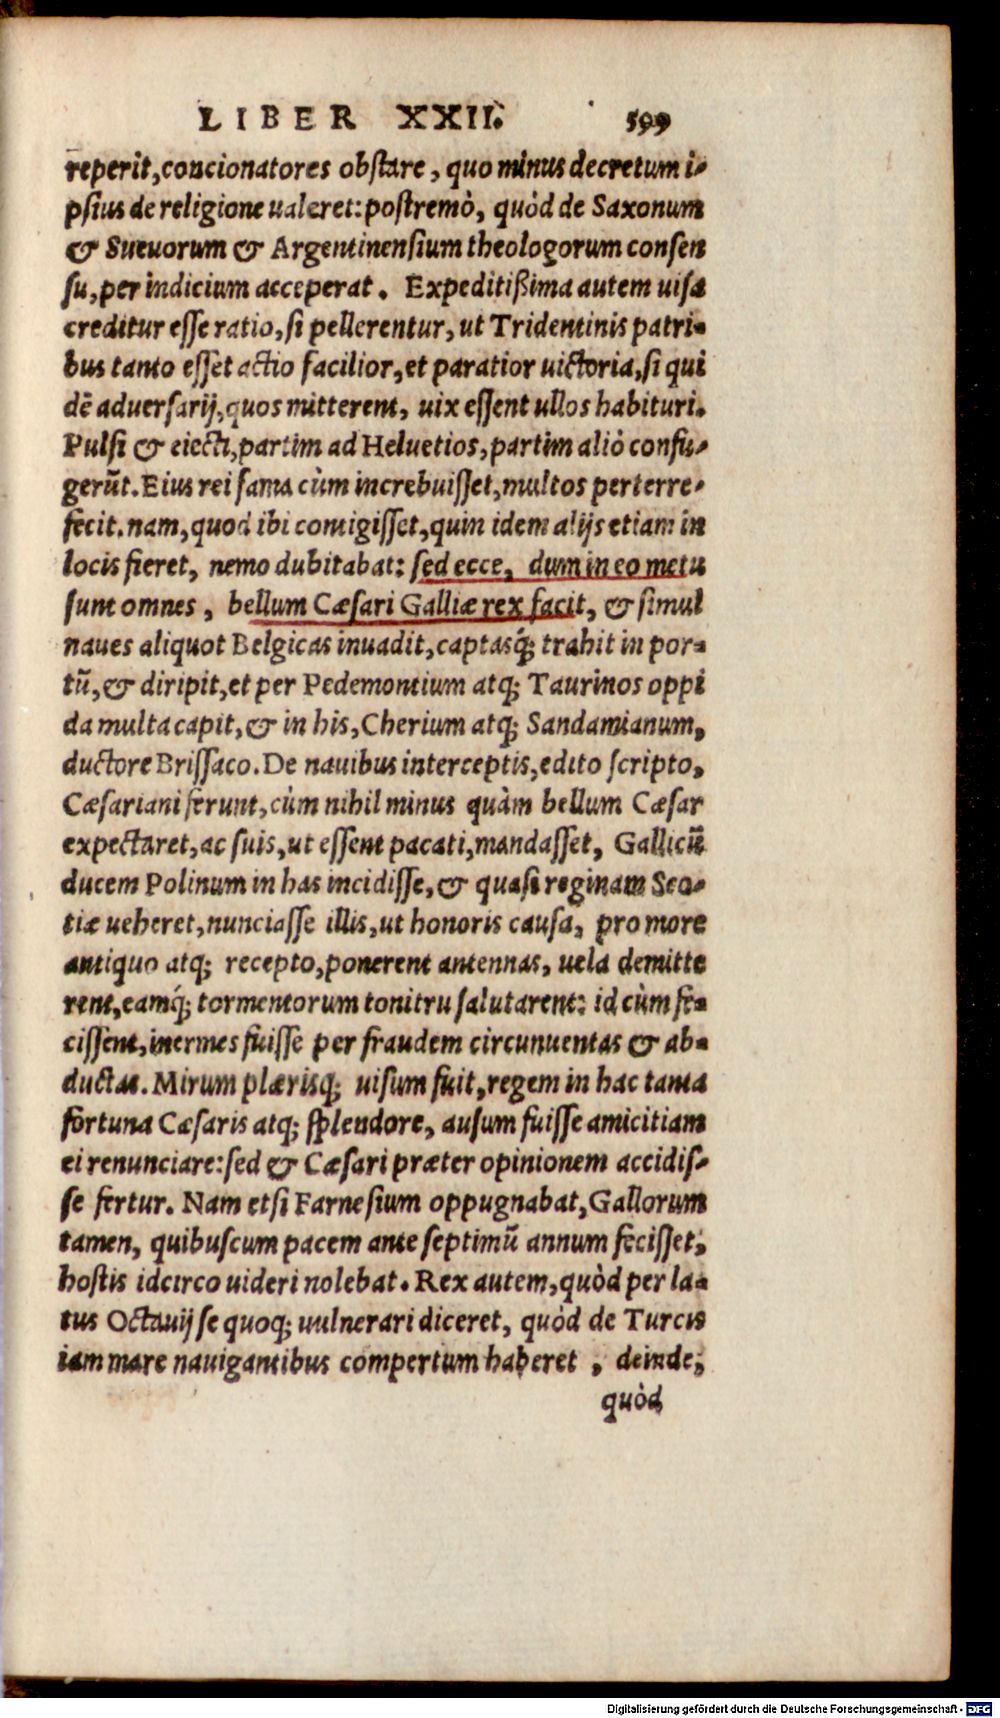 LIBER XXII. 599
reperit, concionatores obstare, quo minus decretum i-
psius de religione ualeret: postremò, quòd de Saxonum
& Sueuorum & Argentinensium theologorum consen
su, per indicium acceperat. Expeditißima autem uisa
creditur esse ratio, si pellerentur, ut Tridentinis patri-
bus tanto esset actio facilior, et paratior uictoria, si qui
dē aduersarij, quos mitterent, uix essent ullos habituri.
Pulsi & eiecti, partim ad Heluetios, partim aliò confu-
gerūt. Eius rei fama cùm increbuisset, multos perterre-
fecit. nam, quod ibi contigisset, quin idem alijs etiam in
locis fieret, nemo dubitabat: sed ecce, dum in eo metu
sunt omnes, bellum Cæsari Galliæ rex facit, & simul
naues aliquot Belgicas inuadit, captasq́; trahit in por-
tū, & diripit, et per Pedemontium atq; Taurinos oppi
da multa capit, & in his, Cherium atq; Sandamianum,
ductore Brissaco. De nauibus interceptis, edito scripto,
Cæsariani ferunt, cùm nihil minus quàm bellum Cæsar
expectaret, ac suis, ut essent pacati, mandasset, Gallicū
ducem Polinum in has incidisse, & quasi reginam Sco-
tiæ ueheret, nunciasse illis, ut honoris causa, pro more
antiquo atq; recepto, ponerent antennas, uela demitte
rent, eamq́; tormentorum tonitru salutarent: id cùm fe-
cissent, inermes fuisse per fraudem circunuentas & ab-
ductas. Mirum plærisq; uisum fuit, regem in hac tanta
fortuna Cæsaris atq; splendore, ausum fuisse amicitiam
ei renunciare: sed & Cæsari præter opinionem accidis-
se fertur. Nam etsi Farnesium oppugnabat, Gallorum
tamen, quibuscum pacem ante septimū annum fecisset,
hostis idcirco uideri nolebat. Rex autem, quòd per la-
tus Octauij se quoq; uulnerari diceret, quòd de Turcis
iam mare nauigantibus compertum haberet, deinde,
quòd
Digitalisierung gefördert durch die Deutsche Forschungsgemeinschaft - DFG